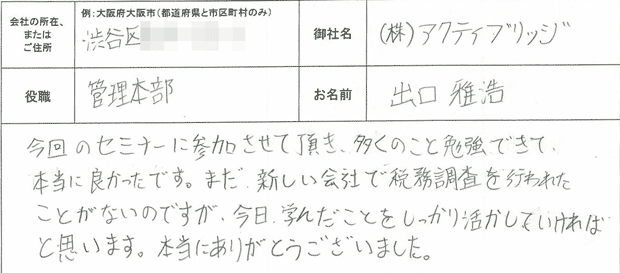 会社の所在、
または
ご住所
例：大阪府大阪市（都道府県と市区町村のみ）
渋谷区
御社名
(株)アクティブリッジ
役職
管理本部
お名前
出口 雅浩
今回のセミナーに参加させて頂き、多くのこと勉強できて、
本当に良かったです。まだ、新しい会社で税務調査を行われた
ことがないのですが、今日、学んだことをしっかり活かしていければ
と思います。本当にありがとうございました。